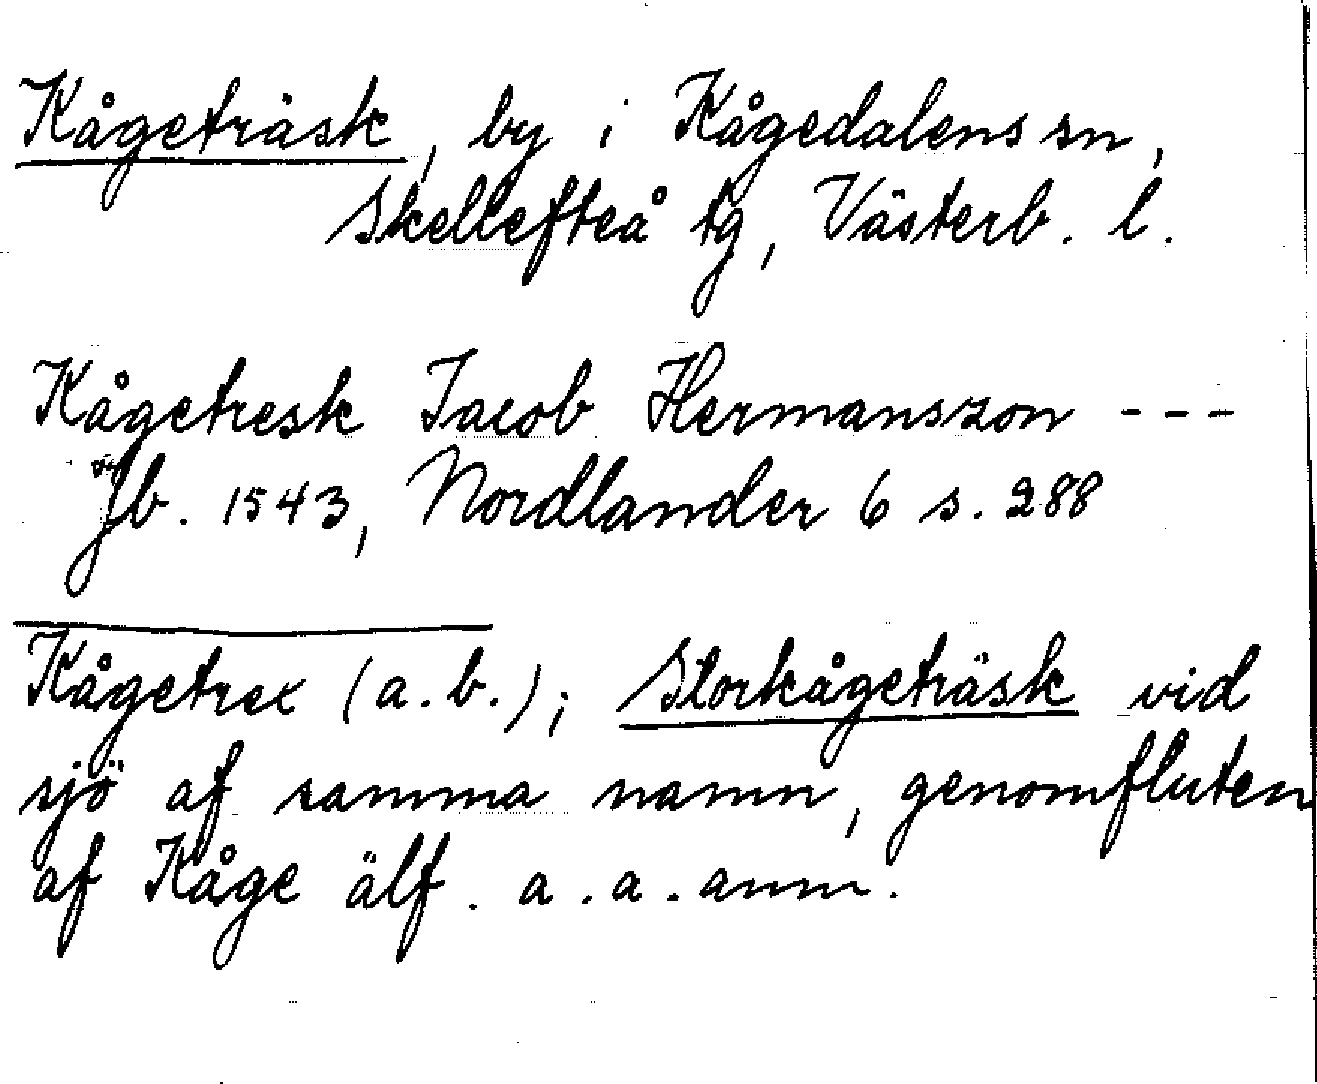 Kågeträsk, by i Kågedalens sn,
Skellefteå tg, Västerb. l.
Kågetresk Jacob Hermanszon ---
Jb. 1543, Nordlander 6 s. 288
Kågetrex (a.b.); Storkågeträsk vid
sjö af samma namn, genomfluten
af Kåge älf. a.a. anm.